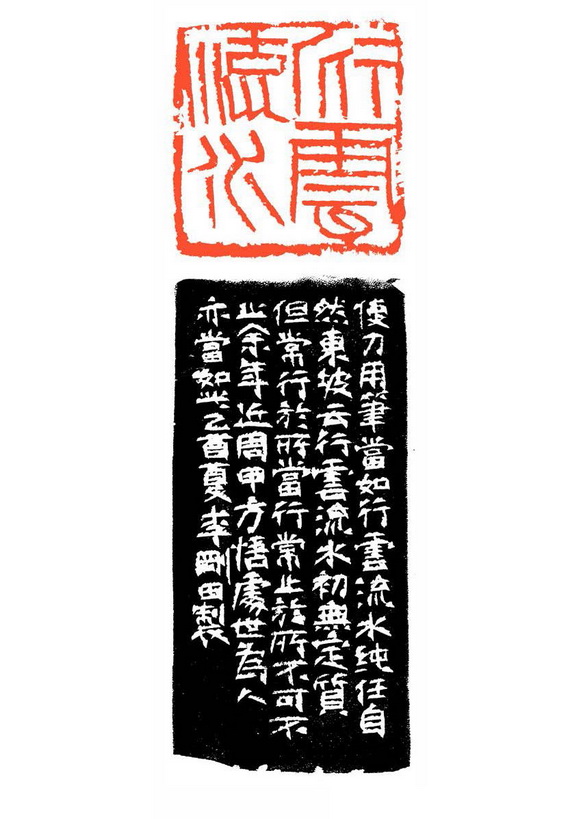 行雲
流水
使刀用筆當如行雲流水純任自
然東坡云行雲流水初無定質
但常行於所當行常止於所不可不
止余年近周甲方悟處世為人
亦當如此乙酉夏李剛田製